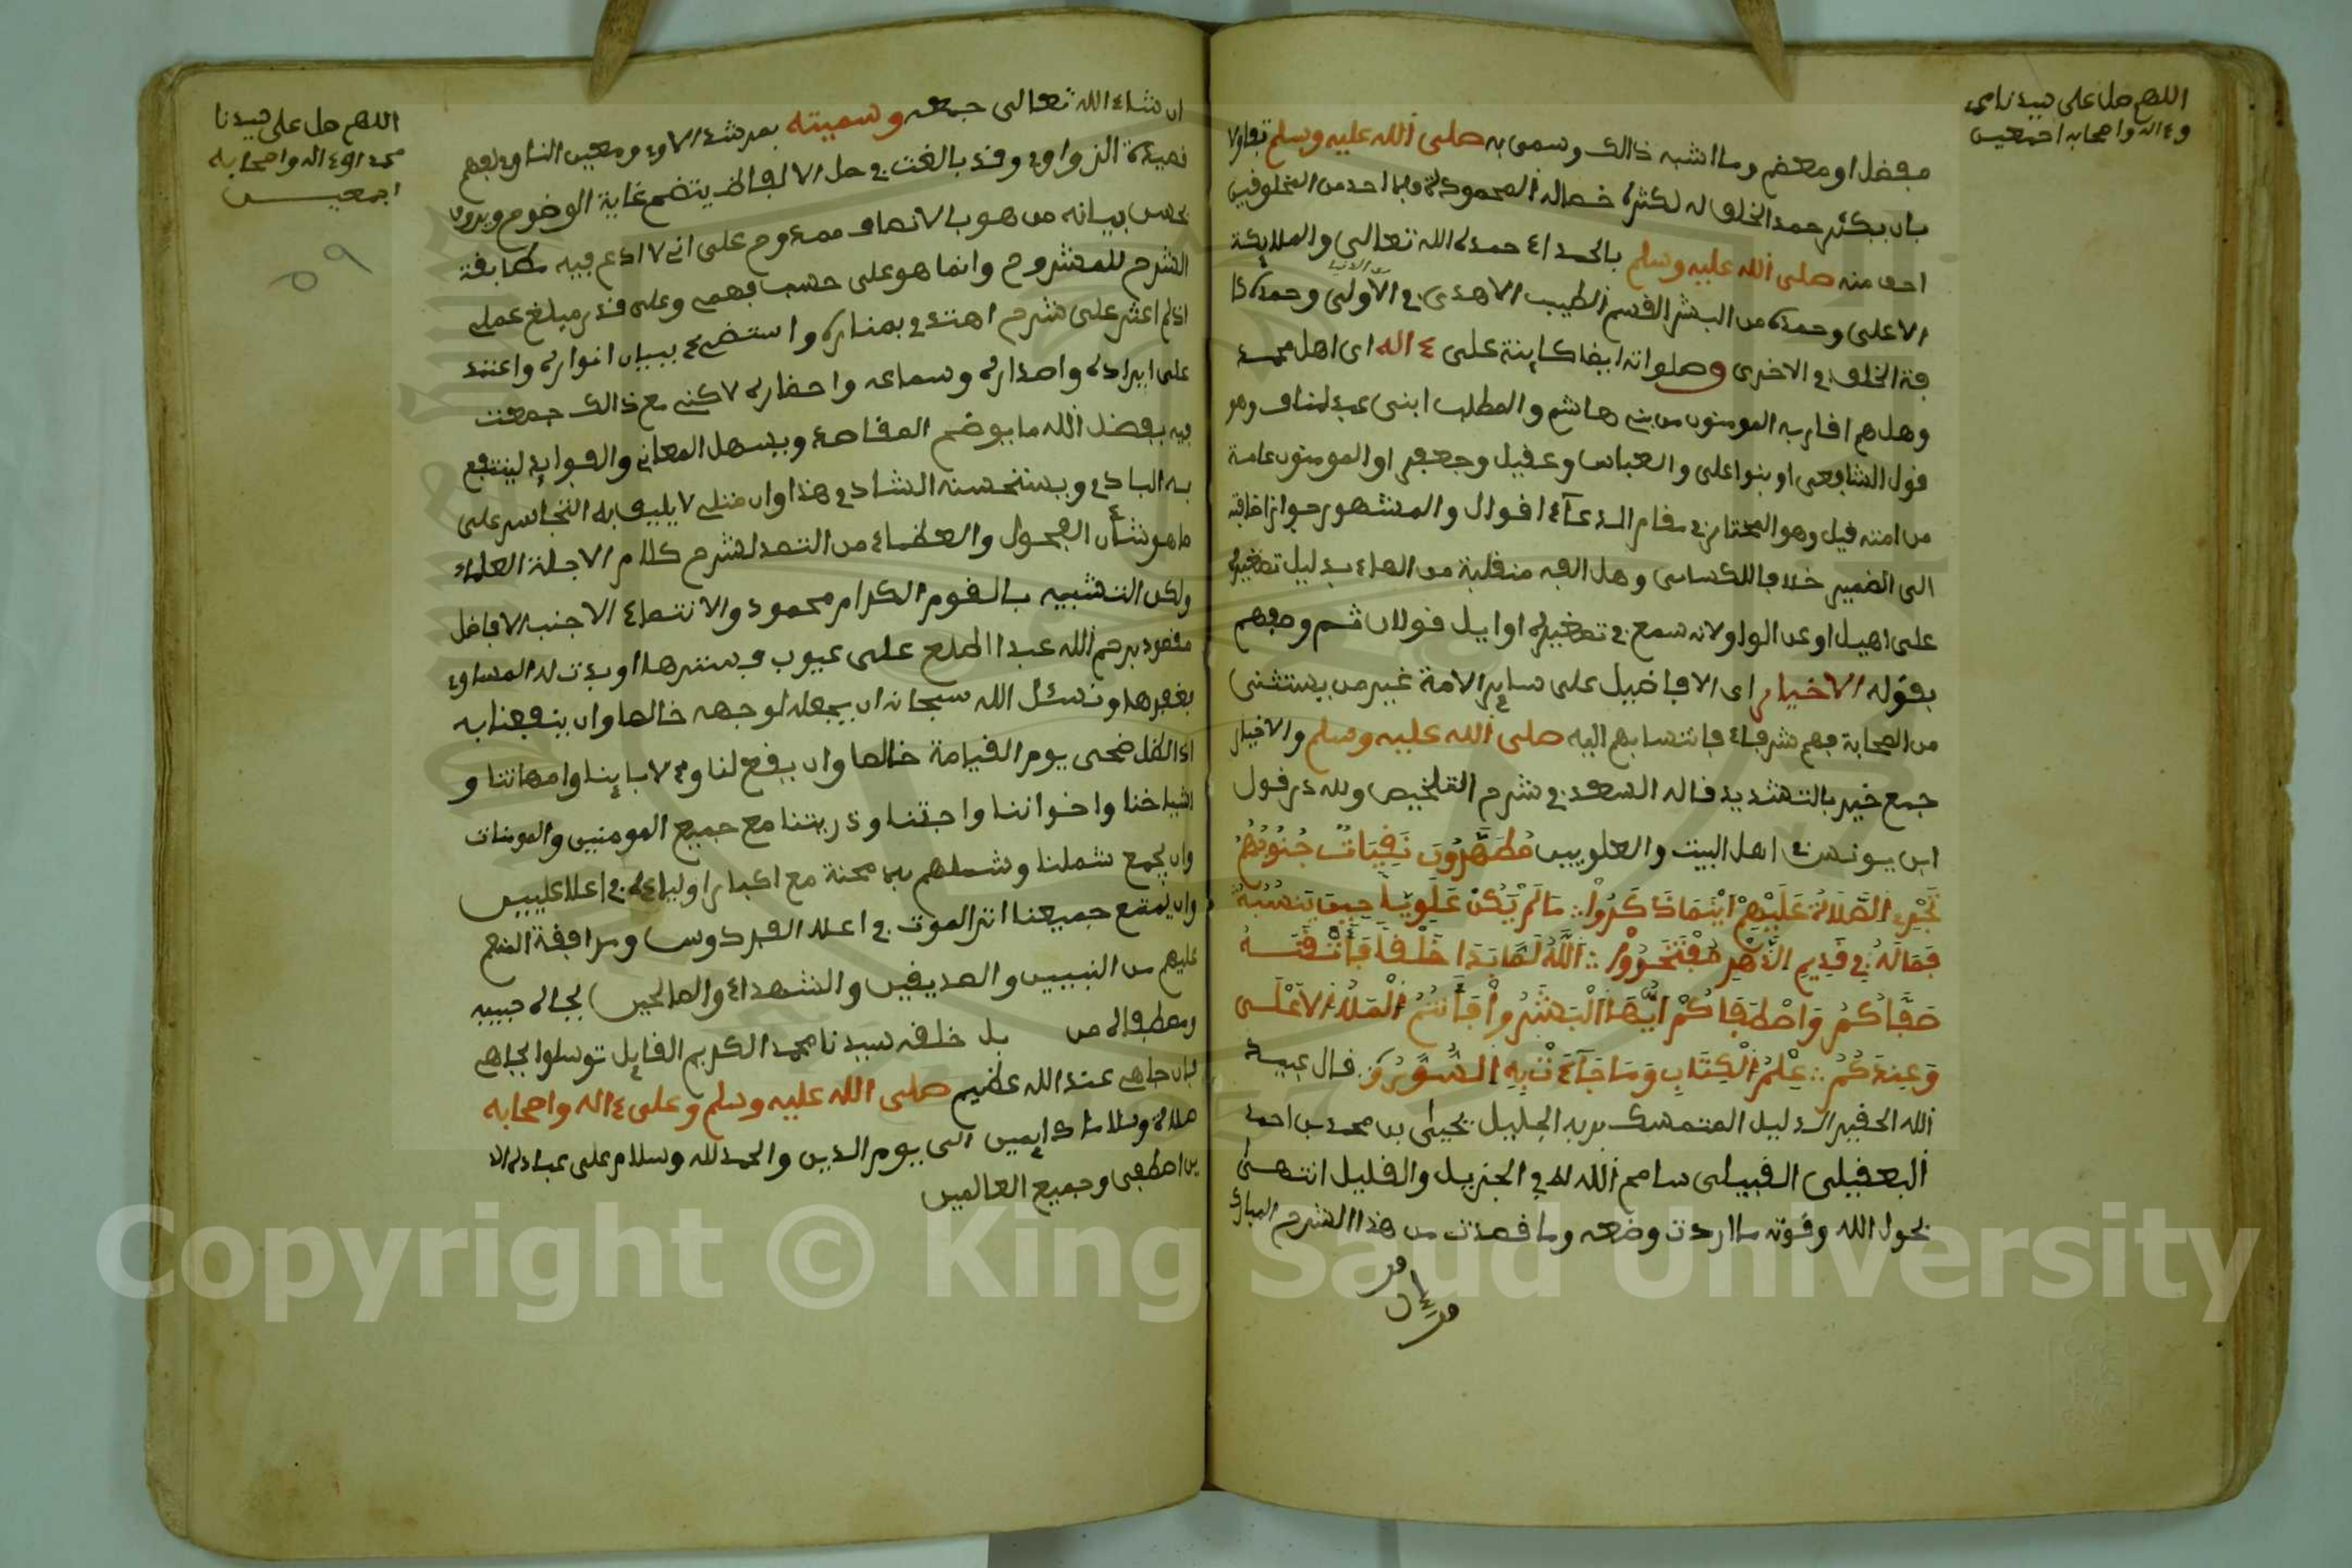 اللهم صل على سيدنا محمد
وءاله واصحابه اجمعين
مفضل او معظم وما اشبه ذالك وسمى به صلى الله عليه وسلم تفاولا
بان يكثر حمد الخلق له لكثرة خصاله المحمودة وما احد من المخلوفين
احق منه صلى الله عليه وسلم بالحمد اذ حمده الله تعالى والملايكة
الاعلى وحمده من البشر القسم الطيب الاهدى في الاولى وحمده كا
فة الخلق في الاخرى وصلواته ايضا كاينة على ءاله اى اهل محمد
وهل هم افاربه المومنون من بني هاشم والمطلب ابنى عبد مناف وهو
قول الشافعى او بنوا على والعباس وعقيل وجعفر او المومنون عامة
من امته قيل وهو المختار في مقام الدعآء اقوال والمشهور جواز اضافته
الى الضمير خلافا للكساى وهل الفه منقلبة من الهاء بدليل تصغيره
على اهيل او عن الواو لانه سمع في تصغيره اوايل قولان ثم وصفهم
بقوله الاخيار اى الافاضيل على ساير الامة غير من يستثنى
من الصحابة فهم شرفاء فانتسابهم اليه صلى الله عليه وسلم والاخيار
جمع خير بالتشديد قاله السعد في شرح التلخيص ولله در قول
ابن يونس في اهل البيت والعلويين مُطَهَّرُونَ نَقِيَاتٌ جُنُوبُهُمُ
تَجْرِى الصَّلَاةُ عَلَيْهِمْ أَيْنَمَا ذُكِرُوا ∴ مَا لَمْ يَكُنْ عَلَوِيّاً حِينَ تَنْسُبُهُ
فَمَا لَهُ فِي قَدِيمِ الدَّهْرِ مُفْتَخَرُ ∴ اللَّهُ لَمَّا بَدَا خَلْقاً فَأَتْقَنَهُ
صَفَّاكُمْ وَاصْطَفَاكُمْ أَيُّهَا الْبَشَرُ وَأَنْتُمُ الْمَلَأُ الأَعْلَى
وَعِنْدَكُمُ ∴ عِلْمُ الْكِتَابِ وَمَا جَآءَتْ بِهِ السُّوَرُ قال عبيد
الله الحقير الذليل المتمسك بربه الجليل يحيى بن محمد بن احمد
القبيلى سامح الله له في الجزيل والقليل انتهى
بحول الله وقوته ما اردت وضعه وما قصدت من هذا الشرح المبارك
اللهم صل على سيدنا
محمد وءاله واصحابه
اجمعين
٥٩
ان شاء الله تعالى جمعه وسميته بمرشد الاوى ومعين الناوى لفهم
قصيدة الزواوى وقد بالغت في حل الالفاظ يتضح غاية الوضوح وبدون
بيانه من هو بالانصاف ممدوح على انى لا ادعى فيه مطابقة
الشرح للمشروح وانما هو على حسب فهمى وعلى قدر مبلغ عملى
اذ لم اعثر على شرح اهتدى بمناره واستضىء ببيان انواره واعتمد
على ايراده واصداره وسماعه واحضاره لاكنى مع ذالك جمعت
فيه بفضل الله ما يوضح المقاصد ويسهل المعانى والفوايد لينتفع
به البادى ويستحسنه الشادى هذا وان مثلى لا يليق به التجاسر على
ما هو شأن الفحول والعظماء من التصد لشرح كلام الاجلة العلماء
ولكن التشبيه بالقوم الكرام محمود والانتماء الافاضل
مقصود يرحم الله عبدا اطلع على عيوب فسترها او بدت له المساوى
بغفرها ونسئل الله سبحانه ان يجعله لوجهه خالصا وان ينفعنا به
اذا الظل ضحى يوم القيامة خالصا وان يفتح لنا ولابابينا وامهاتنا و
اشياخنا واخواننا واحبتنا وذريتنا مع جميع المومنين والمومنات
وان يجمع شملنا وشملهم بلا محنة مع اكبار اولياءه في اعلا عليين
وان يمتع جميعنا اثر الموت في اعلا الفردوس ومرافقة المنعم
عليهم من النبيين والصديقين والشهداء والصالحين بجاه حبيبه
ومصطفاه من بل خلقه سيدنا محمد الكريم القايل توسلوا بجاهى
فان جاهى عند الله عظيم صلى الله عليه وسلم وعلى ءاله واصحابه
صلاة وسلاما دايمين الى يوم الدين والحمد لله وسلام على عباده الذ
ين اصطفى وجميع العالمين
Copyright © King Saud University